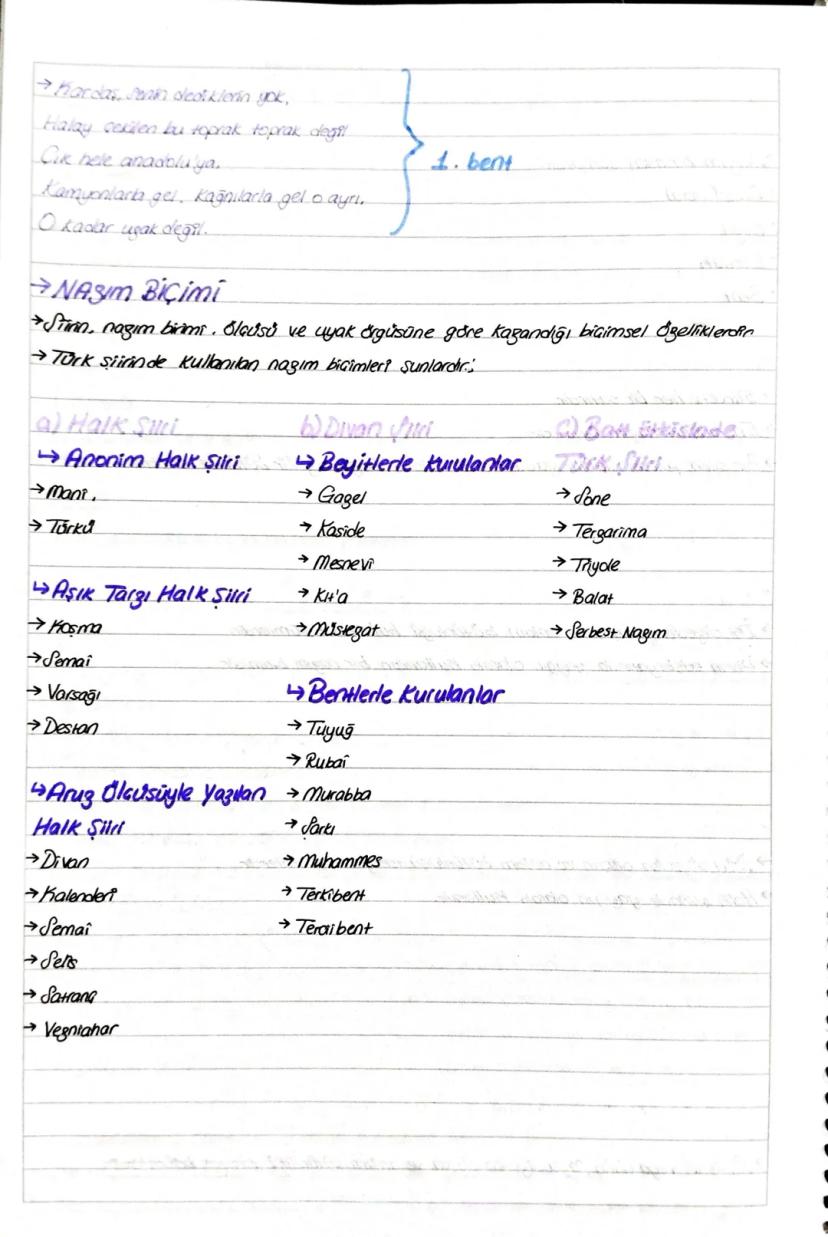 → Kardaş, senin dediklerin yok,
Halay çekilen bu toprak toprak değil
Çık hele anadolu'ya.
Kamyonlarla gel, kağnılarla gel o ayrı.
O kadar uzak değil.
1. bent
→ NAZIM BİÇİMİ
→ Şiirin, nazım birimi, ölçüsü ve uyak örgüsüne göre kazandığı biçimsel özelliklerdir
→ Türk şiirinde kullanılan nazım biçimleri şunlardır:
a) Halk Şiiri
↳ Anonim Halk Şiiri
→ Mani,
→ Türkü
↳ Aşık Tarzı Halk Şiiri
→ Koşma
→ Semaî
→ Varsağı
→ Destan
↳ Aruz Ölçüsüyle Yazılan
Halk Şiiri
→ Divan
→ Kalenderî
→ Semaî
→ Selis
→ Satranç
→ Vezniahar
b) Divan Şiiri
↳ Beyitlerle Kurulanlar
→ Gazel
→ Kaside
→ Mesnevî
→ Kıt'a
→ Müstezat
↳ Bentlerle Kurulanlar
→ Tuyuğ
→ Rubaî
→ Murabba
→ Şarkı
→ Muhammes
→ Terkibent
→ Terciibent
c) Batı Etkisinde
Türk Şiiri
→ Sone
→ Terzarima
→ Triyole
→ Balat
→ Serbest Nazım